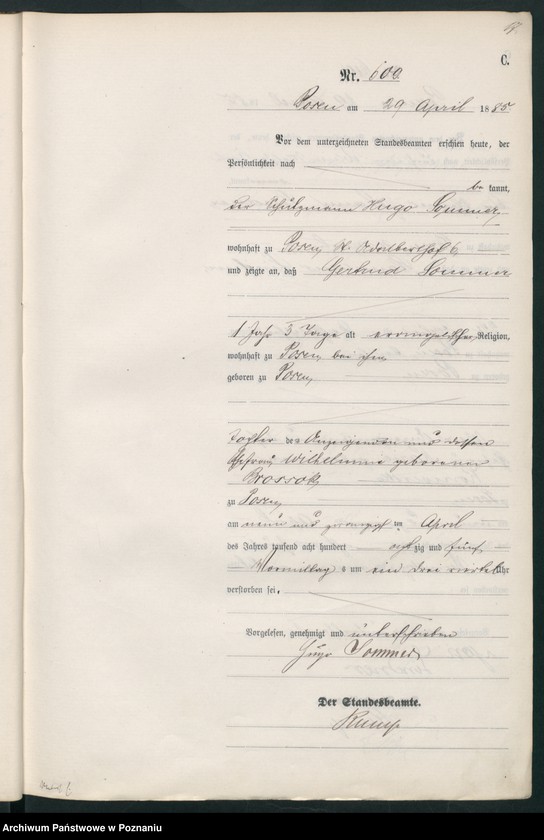 C.
Nr. 600
Posen am 29 April 1885
Vor dem unterzeichneten Standesbeamten erschien heute, der
Persönlichkeit nach
be kannt,
der Schutzmann Hugo Sommer,
wohnhaft zu Posen, St. Adalberthof 6
und zeigte an, daß Gertrud Sommer
1 Jahr 3 Tage alt evangelischer Religion,
wohnhaft zu Posen bei ihm
geboren zu Posen,
Tochter des Anzeigenden und dessen
Ehefrau Wilhelmine geborenen
zu Posen,
am neun und zwanzigsten April
des Jahres tausend acht hundert achtzig und fünf
Vormittag s um ein drei viertel Uhr
verstorben sei.
Vorgelesen, genehmigt und unterschrieben
Hugo Sommer
Der Standesbeamte.
Archiwum Państwowe w Poznaniu